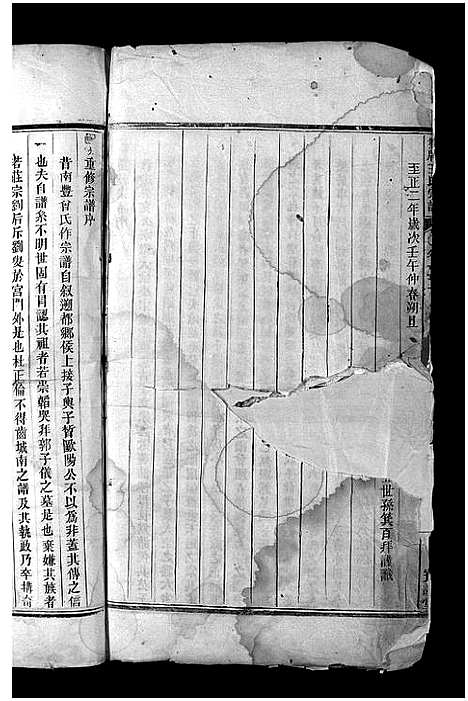 至正二年歲次壬午仲春朔旦
世孫箕百拜謹識
重修宗譜序
昔南豐曾氏作宗譜自叙遡都鄉侯上接子輿子皙歐陽公不以為非蓋其傳之信
也夫自譜系不明世固有目認其祖者若崇韜哭拜郭子儀之墓是也棄嫌其族者
若莊宗到后斥劉叟於宮門外是也杜正倫不得齒城南之譜及其執政乃奉搆奇